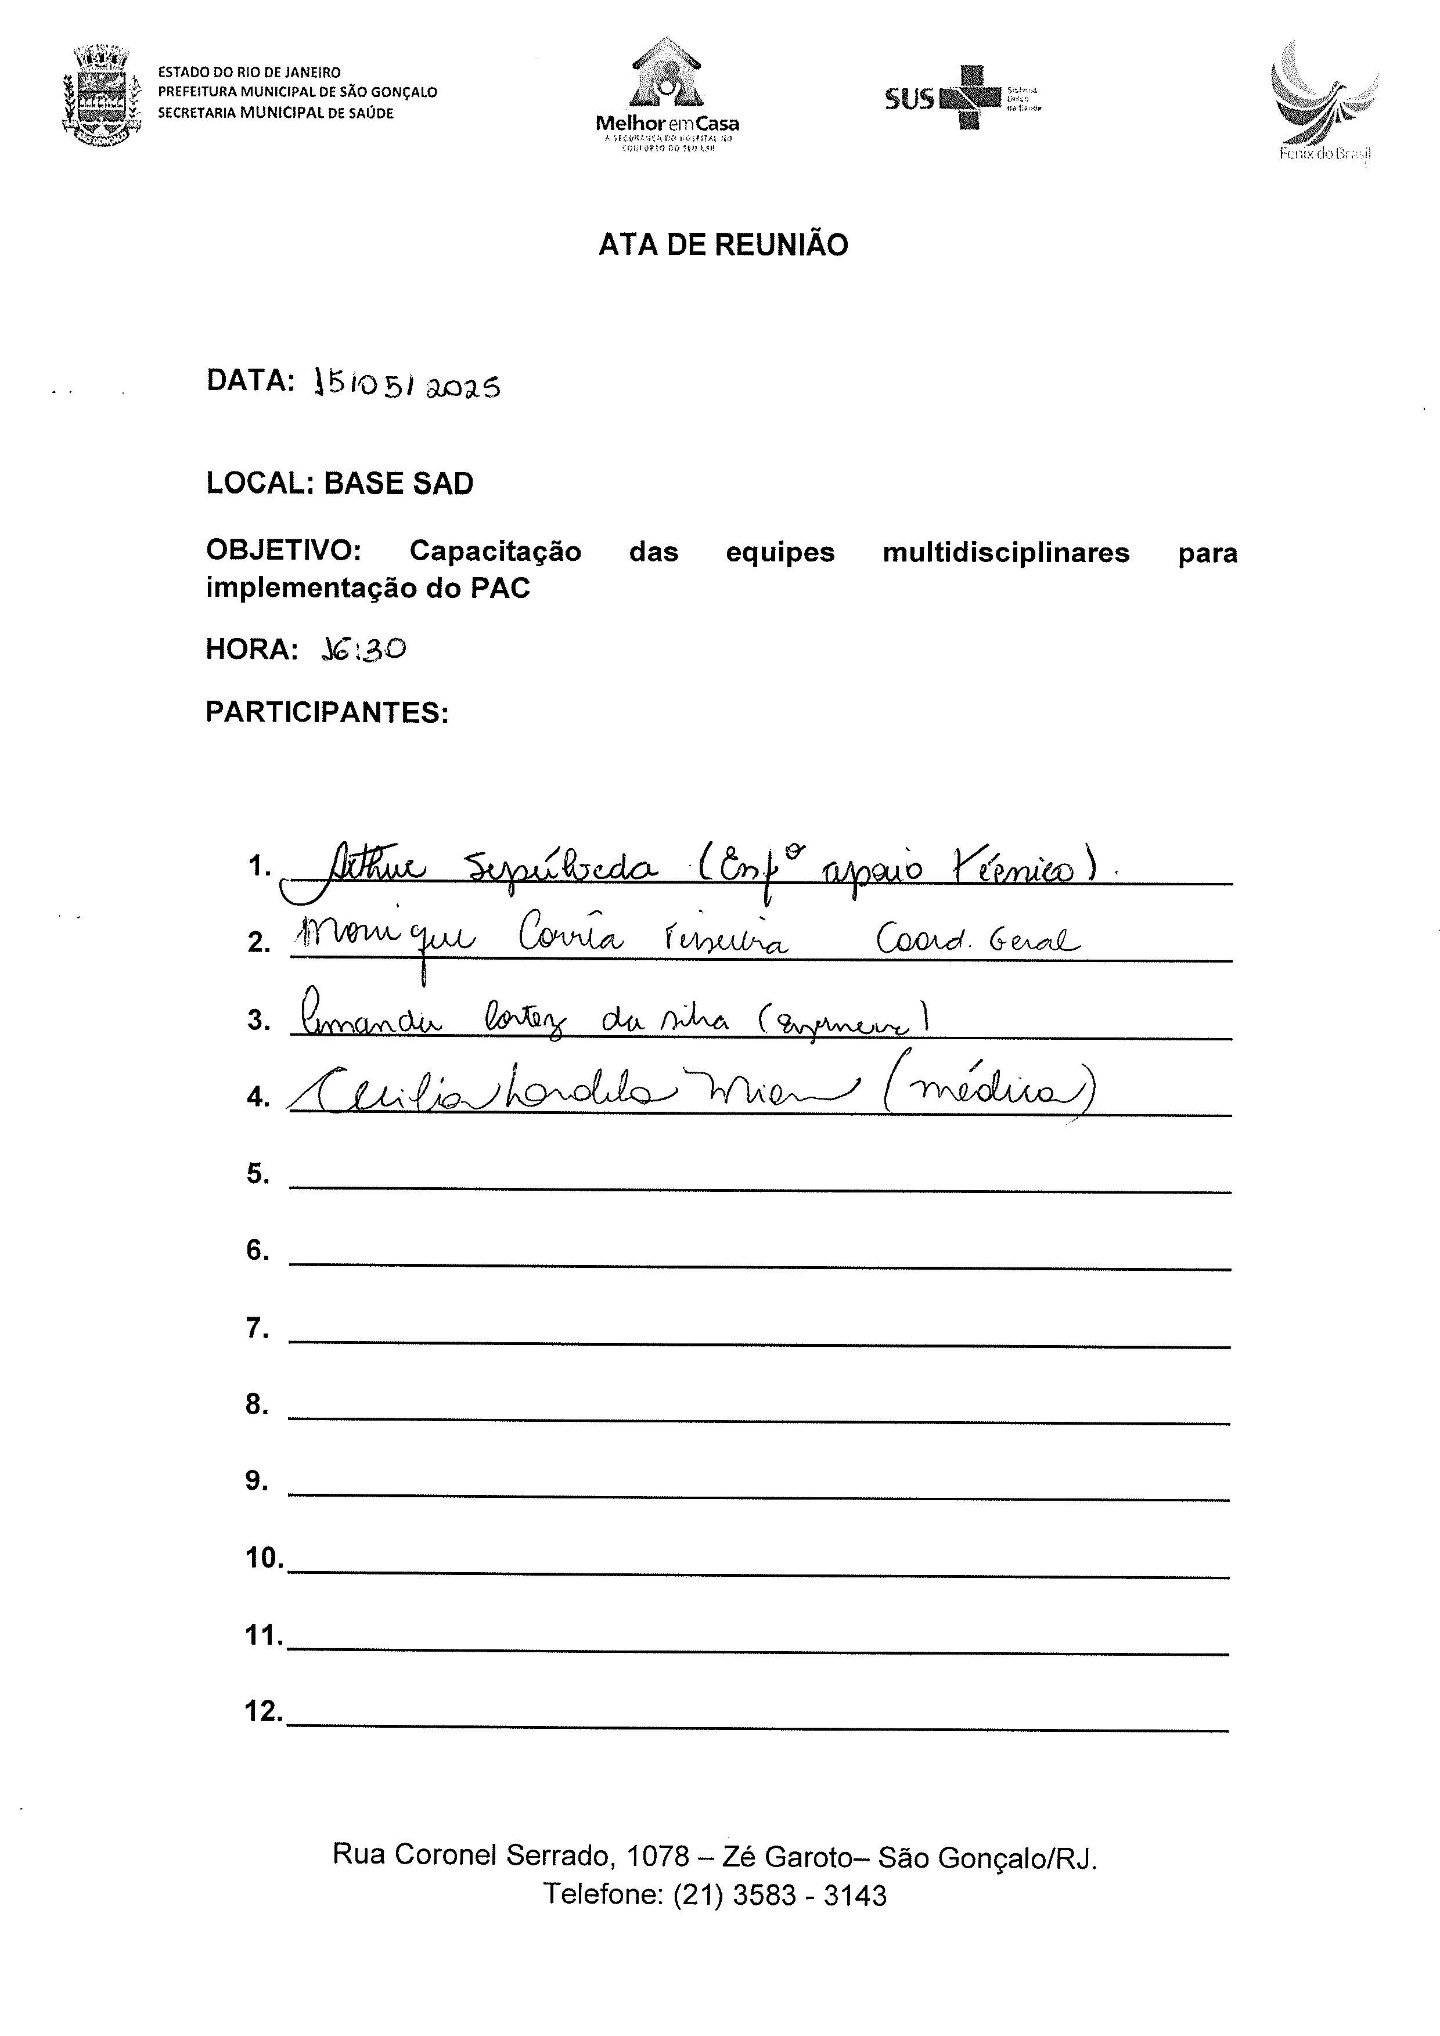 ESTADO DO RIO DE JANEIRO
PREFEITURA MUNICIPAL DE SÃO GONÇALO
SECRETARIA MUNICIPAL DE SAÚDE
Melhor em Casa
A SEGURANÇA DO HOSPITAL NO
CONFORTO DO SEU LAR
SUS
Sistema
Único
de Saúde
Fenix do Brasil
ATA DE REUNIÃO
DATA: 15/05/2025
LOCAL: BASE SAD
OBJETIVO: Capacitação das equipes multidisciplinares para
implementação do PAC
HORA: 16:30
PARTICIPANTES:
1. Arthur Sepúlveda (Enfº apoio Técnico).
2. Monique Corrêa Teixeira Coord. Geral
3. Amanda Cortez da Silva
4. Cecilia (médica)
5.
6.
7.
8.
9.
10.
11.
12.
Rua Coronel Serrado, 1078 – Zé Garoto– São Gonçalo/RJ.
Telefone: (21) 3583 - 3143